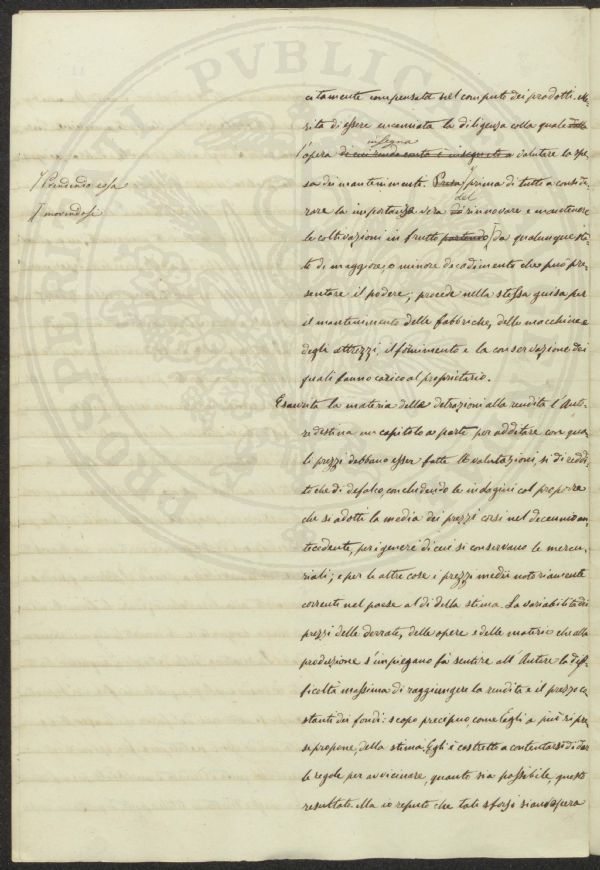 PROSPERITATI PVBLICAE
citamente compensata nel computo dei prodotti. Me-
rita di essere encomiata la diligenza colla quale
insegna
l'opera a valutare la spe-
⌈ Prendendo essa
sa dei mantenimenti. Presa ⌈ prima di tutto a conside-
del
⌈ movendosi
rare la importanza vera di rinnovare e mantenere
le coltivazioni in frutto partendo ⌈ da qualunque sta-
to di maggiore, o minore decadimento che può pre-
sentare il podere; procede nella stessa guisa per
il mantenimento delle fabbriche, delle macchine e
degli attrezzi, il fornimento e la conservazione dei
quali fanno carico al proprietario.
Esaurita la materia delle detrazioni alla rendita l'Auto-
re destina un capitolo a parte per additare con qua-
li prezzi debbano esser fatte le valutazioni, sì di reddi-
to che di defalco, concludendo le indagini col proporre
che si adotti la media dei prezzi corsi nel decennio an-
tecedente, per i generi di cui si conservano le mercu-
riali; e per le altre cose i prezzi medii notoriamente
correnti nel paese al dì della stima. La variabilità dei
prezzi delle derrate, delle opere e delle materie che alla
produzione s'impiegano fa sentire all'Autore la diff-
ficoltà massima di raggiungere la rendita e il prezzo co-
stanti dei fondi: scopo precipuo, come Egli a più ripre-
se propone, della stima. Egli è costretto a contentarsi di dar
le regole per avvicinare, quanto sia possibile, questo
resultato. Ma io reputo che tali sforzi siano opera